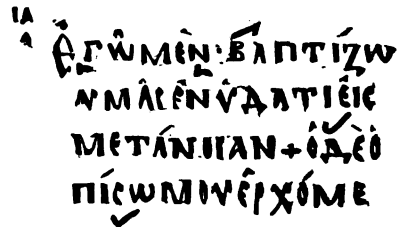 ΙΑ
Α
ἘΓὼΜὲΝ·ΒΑΠΤίΖω
ΥΜᾶϹἐΝὕΔΑΤΙΕἰϹ
ΜΕΤάΝΙΙΑΝ+ὁΔὲὀ
ΠίϹωΜΟΥἐΡΧόΜΕ